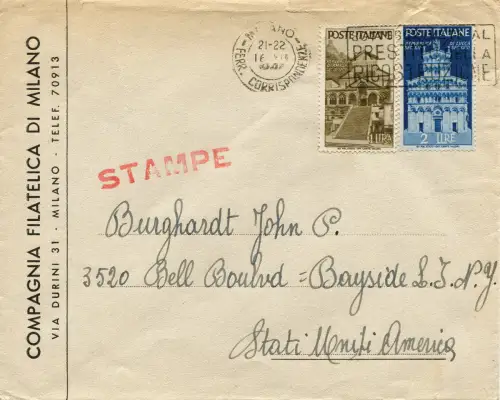 COMPAGNIA FILATELICA DI MILANO
VIA DURINI 31 - MILANO - TELEF. 70913
MILANO
21-22
16
1947
FERR. CORRISPONDENZE
POSTE ITALIANE
1 LIRA
POSTE ITALIANE
2 LIRE
PRES
STAMPE
Burghardt John P.
3520 Bell Boulvd = Bayside L.I. N.Y.
Stati Uniti America